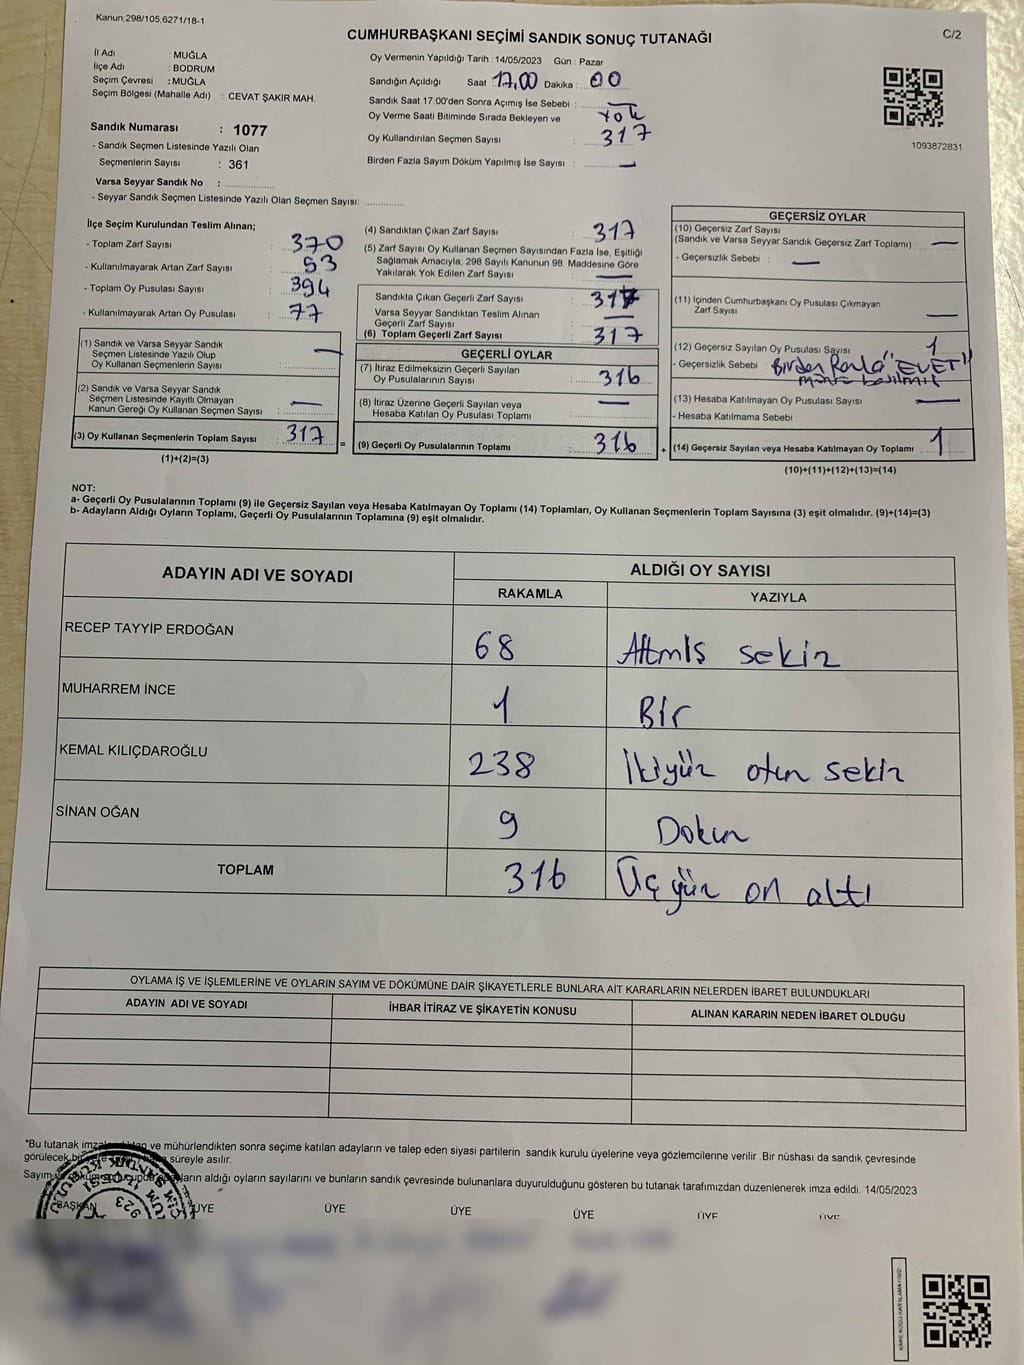 Kanun;298/105,6271/18-1
CUMHURBAŞKANI SEÇİMİ SANDIK SONUÇ TUTANAĞI
C/2
İl Adı : MUĞLA
İlçe Adı : BODRUM
Seçim Çevresi : MUĞLA
Seçim Bölgesi (Mahalle Adı) : CEVAT ŞAKİR MAH.
Sandık Numarası : 1077
- Sandık Seçmen Listesinde Yazılı Olan
Seçmenlerin Sayısı : 361
Varsa Seyyar Sandık No :
- Seyyar Sandık Seçmen Listesinde Yazılı Olan Seçmen Sayısı:
Oy Vermenin Yapıldığı Tarih : 14/05/2023 Gün : Pazar
Sandığın Açıldığı Saat 17,00 Dakika : 00
Sandık Saat 17:00'den Sonra Açımış İse Sebebi : —
Oy Verme Saati Bitiminde Sırada Bekleyen ve Yok
Oy Kullandırılan Seçmen Sayısı : 317
Birden Fazla Sayım Döküm Yapılmış İse Sayısı : —
1093872831
İlçe Seçim Kurulundan Teslim Alınan;
- Toplam Zarf Sayısı : 370
- Kullanılmayarak Artan Zarf Sayısı : 53
- Toplam Oy Pusulası Sayısı : 394
- Kullanılmayarak Artan Oy Pusulası : 77
(1) Sandık ve Varsa Seyyar Sandık
Seçmen Listesinde Yazılı Olup
Oy Kullanan Seçmenlerin Sayısı : —
(2) Sandık ve Varsa Seyyar Sandık
Seçmen Listesinde Kayıtlı Olmayan
Kanun Gereği Oy Kullanan Seçmen Sayısı : —
(3) Oy Kullanan Seçmenlerin Toplam Sayısı : 317
(1)+(2)=(3)
=
(4) Sandıktan Çıkan Zarf Sayısı : 317
(5) Zarf Sayısı Oy Kullanan Seçmen Sayısından Fazla İse, Eşitliği
Sağlamak Amacıyla, 298 Sayılı Kanunun 98. Maddesine Göre
Yakılarak Yok Edilen Zarf Sayısı : —
Sandıkta Çıkan Geçerli Zarf Sayısı : 317
Varsa Seyyar Sandıktan Teslim Alınan
Geçerli Zarf Sayısı : —
(6) Toplam Geçerli Zarf Sayısı : 317
GEÇERLİ OYLAR
(7) İtiraz Edilmeksizin Geçerli Sayılan
Oy Pusulalarının Sayısı : 316
(8) İtiraz Üzerine Geçerli Sayılan veya
Hesaba Katılan Oy Pusulası Toplamı : —
(9) Geçerli Oy Pusulalarının Toplamı : 316
+
GEÇERSİZ OYLAR
(10) Geçersiz Zarf Sayısı
(Sandık ve Varsa Seyyar Sandık Geçersiz Zarf Toplamı) : —
- Geçersizlik Sebebi : —
(11) İçinden Cumhurbaşkanı Oy Pusulası Çıkmayan
Zarf Sayısı : —
(12) Geçersiz Sayılan Oy Pusulası Sayısı : 1
- Geçersizlik Sebebi : Birden Fazla "EVET"
mührü basılmış
(13) Hesaba Katılmayan Oy Pusulası Sayısı : —
- Hesaba Katılmama Sebebi :
(14) Geçersiz Sayılan veya Hesaba Katılmayan Oy Toplamı : 1
(10)+(11)+(12)+(13)=(14)
NOT:
a- Geçerli Oy Pusulalarının Toplamı (9) ile Geçersiz Sayılan veya Hesaba Katılmayan Oy Toplamı (14) Toplamları, Oy Kullanan Seçmenlerin Toplam Sayısına (3) eşit olmalıdır. (9)+(14)=(3)
b- Adayların Aldığı Oyların Toplamı, Geçerli Oy Pusulalarının Toplamına (9) eşit olmalıdır.
ADAYIN ADI VE SOYADI ALDIĞI OY SAYISI
RAKAMLA YAZIYLA
RECEP TAYYİP ERDOĞAN 68 Altmış sekiz
MUHARREM İNCE 1 Bir
KEMAL KILIÇDAROĞLU 238 İkiyüz otuz sekiz
SİNAN OĞAN 9 Dokuz
TOPLAM 316 Üç yüz on altı
OYLAMA İŞ VE İŞLEMLERİNE VE OYLARIN SAYIM VE DÖKÜMÜNE DAİR ŞİKAYETLERLE BUNLARA AİT KARARLARIN NELERDEN İBARET BULUNDUKLARI
ADAYIN ADI VE SOYADI İHBAR İTİRAZ VE ŞİKAYETİN KONUSU ALINAN KARARIN NEDEN İBARET OLDUĞU
*Bu tutanak ve mühürlendikten sonra seçime katılan adayların ve talep eden siyasi partilerin sandık kurulu üyelerine veya gözlemcilerine verilir .Bir nüshası da sandık çevresinde
görülecek bir süreyle asılır.
Sayım aldığı oyların sayılarını ve bunların sandık çevresinde bulunanlara duyurulduğunu gösteren bu tutanak tarafımızdan düzenlenerek imza edildi. 14/05/2023
BAŞKAN ÜYE ÜYE ÜYE ÜYE ÜYE ÜYE
923